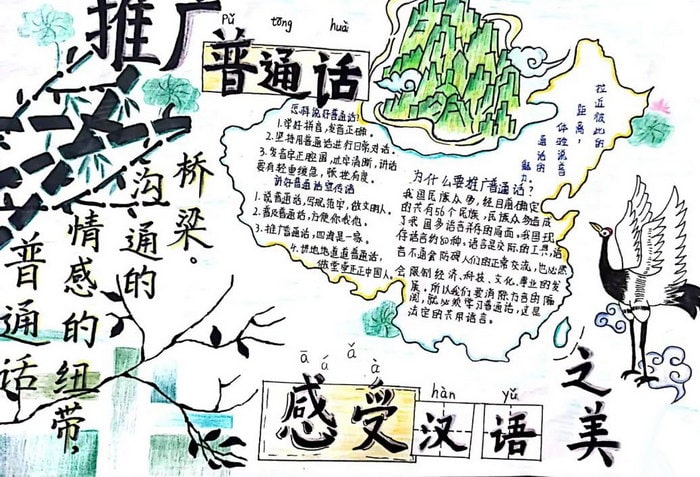 推广
Pǔ tōng huài
普通话
普通话
情感的纽带,
沟通的
桥梁。
怎样说好普通话?
1.学好拼音,发音正确。
2.坚持用普通话进行日常对话。
3.发音字正腔圆,清晰,讲话
要有轻重缓急,张弛有度。
讲好普通话宣传语
1.说普通话,写规范字,做文明人。
2.普及普通话,方便你我他。
3.推广普通话,四海是一家。
4.地地道道普通话,
堂堂正正中国人。
为什么要推广普通话?
我国民族众多,经目前确定
的共有56个民族,民族众多造成
了我国多语言并存的局面。我国现
存语言约80种,语言是交际的工具,语
言不通会防碍人们的正常交流,也必然
会限制经济、科技、文化、事业的发
展。所以我们要消除方言的隔
阂,就必须学习普通话,这是
法定的共用语言。
拉近彼此的
距离,
体验说普
通话的
魅力.
ā á ǎ à
hàn yǔ
感受汉语
之美